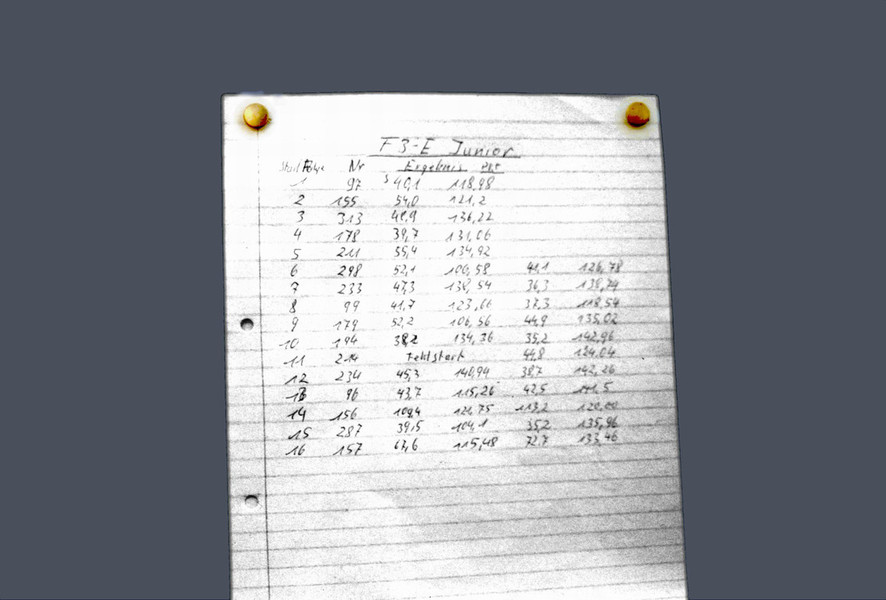 F3-E Junior
Startfolge Nr Ergebnis Pkt
1 97 40,1 118,98
2 155 54,0 121,2
3 313 48,9 136,22
4 178 39,7 131,06
5 211 55,4 134,92
6 298 52,1 106,58 41,1 126,78
7 233 47,3 138,54 36,3 138,74
8 99 41,7 123,66 37,3 118,54
9 179 52,2 106,56 44,9 135,02
10 194 38,2 134,36 35,2 142,96
11 214 Fehlstart 44,8 124,04
12 234 45,3 140,94 38,7 142,26
13 96 43,7 115,26 42,5 141,5
14 156 109,4 121,75 113,2
15 287 39,5 104,1 35,2 135,96
16 157 67,6 115,48 72,7 133,46